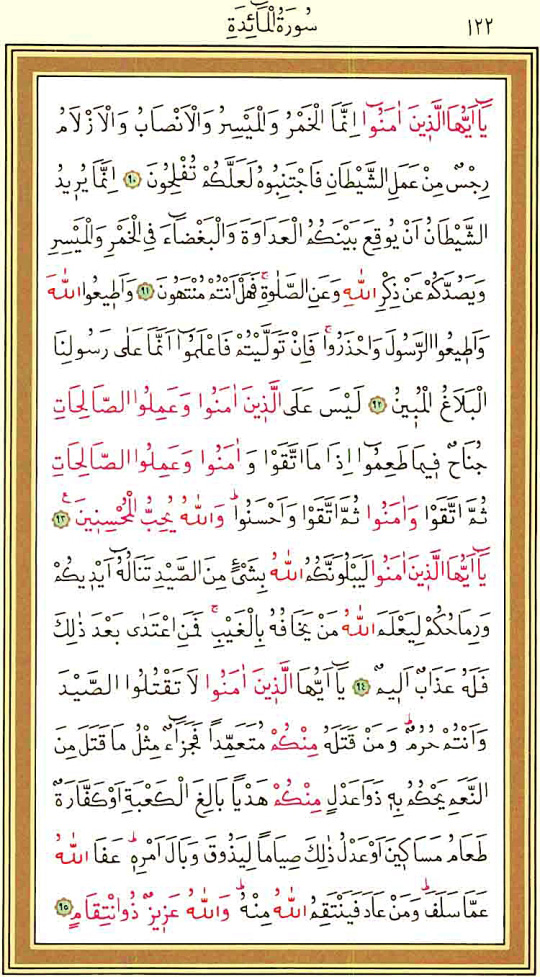 سُورَةُ الْمَٓائِدَةِ ١٢٢
يَٓا اَيُّهَا الَّذ۪ينَ اٰمَنُٓوا اِنَّمَا الْخَمْرُ وَالْمَيْسِرُ وَالْاَنْصَابُ وَالْاَزْلَامُ
رِجْسٌ مِنْ عَمَلِ الشَّيْطَانِ فَاجْتَنِبُوهُ لَعَلَّكُمْ تُفْلِحُونَ ٩٠ اِنَّمَا يُر۪يدُ
الشَّيْطَانُ اَنْ يُوقِعَ بَيْنَكُمُ الْعَدَاوَةَ وَالْبَغْضَٓاءَ فِي الْخَمْرِ وَالْمَيْسِرِ
وَيَصُدَّكُمْ عَنْ ذِكْرِ اللّٰهِ وَعَنِ الصَّلٰوةِۚ فَهَلْ اَنْتُمْ مُنْتَهُونَ ٩١ وَاَط۪يعُوا اللّٰهَ
وَاَط۪يعُوا الرَّسُولَ وَاحْذَرُواۚ فَاِنْ تَوَلَّيْتُمْ فَاعْلَمُٓوا اَنَّمَا عَلٰى رَسُولِنَا
الْبَلَاغُ الْمُب۪ينُ ٩٢ لَيْسَ عَلَى الَّذ۪ينَ اٰمَنُوا وَعَمِلُوا الصَّالِحَاتِ
جُنَاحٌ ف۪يمَا طَعِمُٓوا اِذَا مَا اتَّقَوْا وَاٰمَنُوا وَعَمِلُوا الصَّالِحَاتِ
ثُمَّ اتَّقَوْا وَاٰمَنُوا ثُمَّ اتَّقَوْا وَاَحْسَنُواۜ وَاللّٰهُ يُحِبُّ الْمُحْسِن۪ينَ۟ ٩٣
يَٓا اَيُّهَا الَّذ۪ينَ اٰمَنُوا لَيَبْلُوَنَّكُمُ اللّٰهُ بِشَيْءٍ مِنَ الصَّيْدِ تَنَالُهُٓ اَيْد۪يكُمْ
وَرِمَاحُكُمْ لِيَعْلَمَ اللّٰهُ مَنْ يَخَافُهُ بِالْغَيْبِۚ فَمَنِ اعْتَدٰى بَعْدَ ذٰلِكَ
فَلَهُ عَذَابٌ اَل۪يمٌ ٩٤ يَٓا اَيُّهَا الَّذ۪ينَ اٰمَنُوا لَا تَقْتُلُوا الصَّيْدَ
وَاَنْتُمْ حُرُمٌۜ وَمَنْ قَتَلَهُ مِنْكُمْ مُتَعَمِّداً فَجَزَٓاءٌ مِثْلُ مَا قَتَلَ مِنَ
النَّعَمِ يَحْكُمُ بِه۪ ذَوَا عَدْلٍ مِنْكُمْ هَدْياً بَالِغَ الْكَعْبَةِ اَوْ كَفَّارَةٌ
طَعَامُ مَسَاك۪ينَ اَوْ عَدْلُ ذٰلِكَ صِيَاماً لِيَذُوقَ وَبَالَ اَمْرِه۪ۜ عَفَا اللّٰهُ
عَمَّا سَلَفَۜ وَمَنْ عَادَ فَيَنْتَقِمُ اللّٰهُ مِنْهُۜ وَاللّٰهُ عَز۪يزٌ ذُوانْتِقَامٍ ٩٥